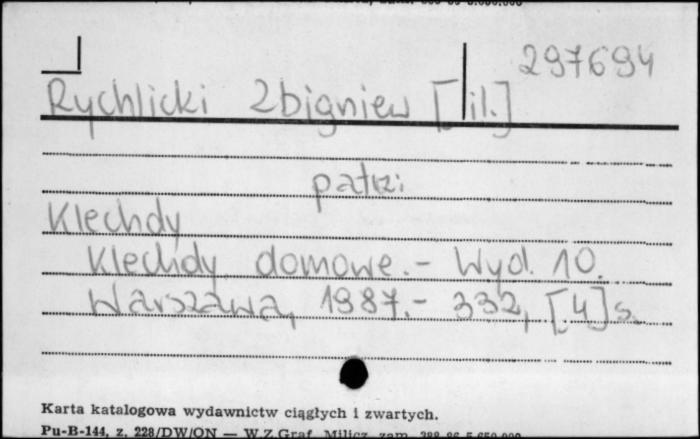 297694
Rychlicki Zbigniew [il.]
patrz:
Klechdy
Klechdy domowe.- Wyd. 10.
Warszawa, 1987.- 332, [4] s.
Karta katalogowa wydawnictw ciągłych i zwartych.
Pu-B-144, z. 228/DW/ON — W.Z.Graf. Milicz, zam.